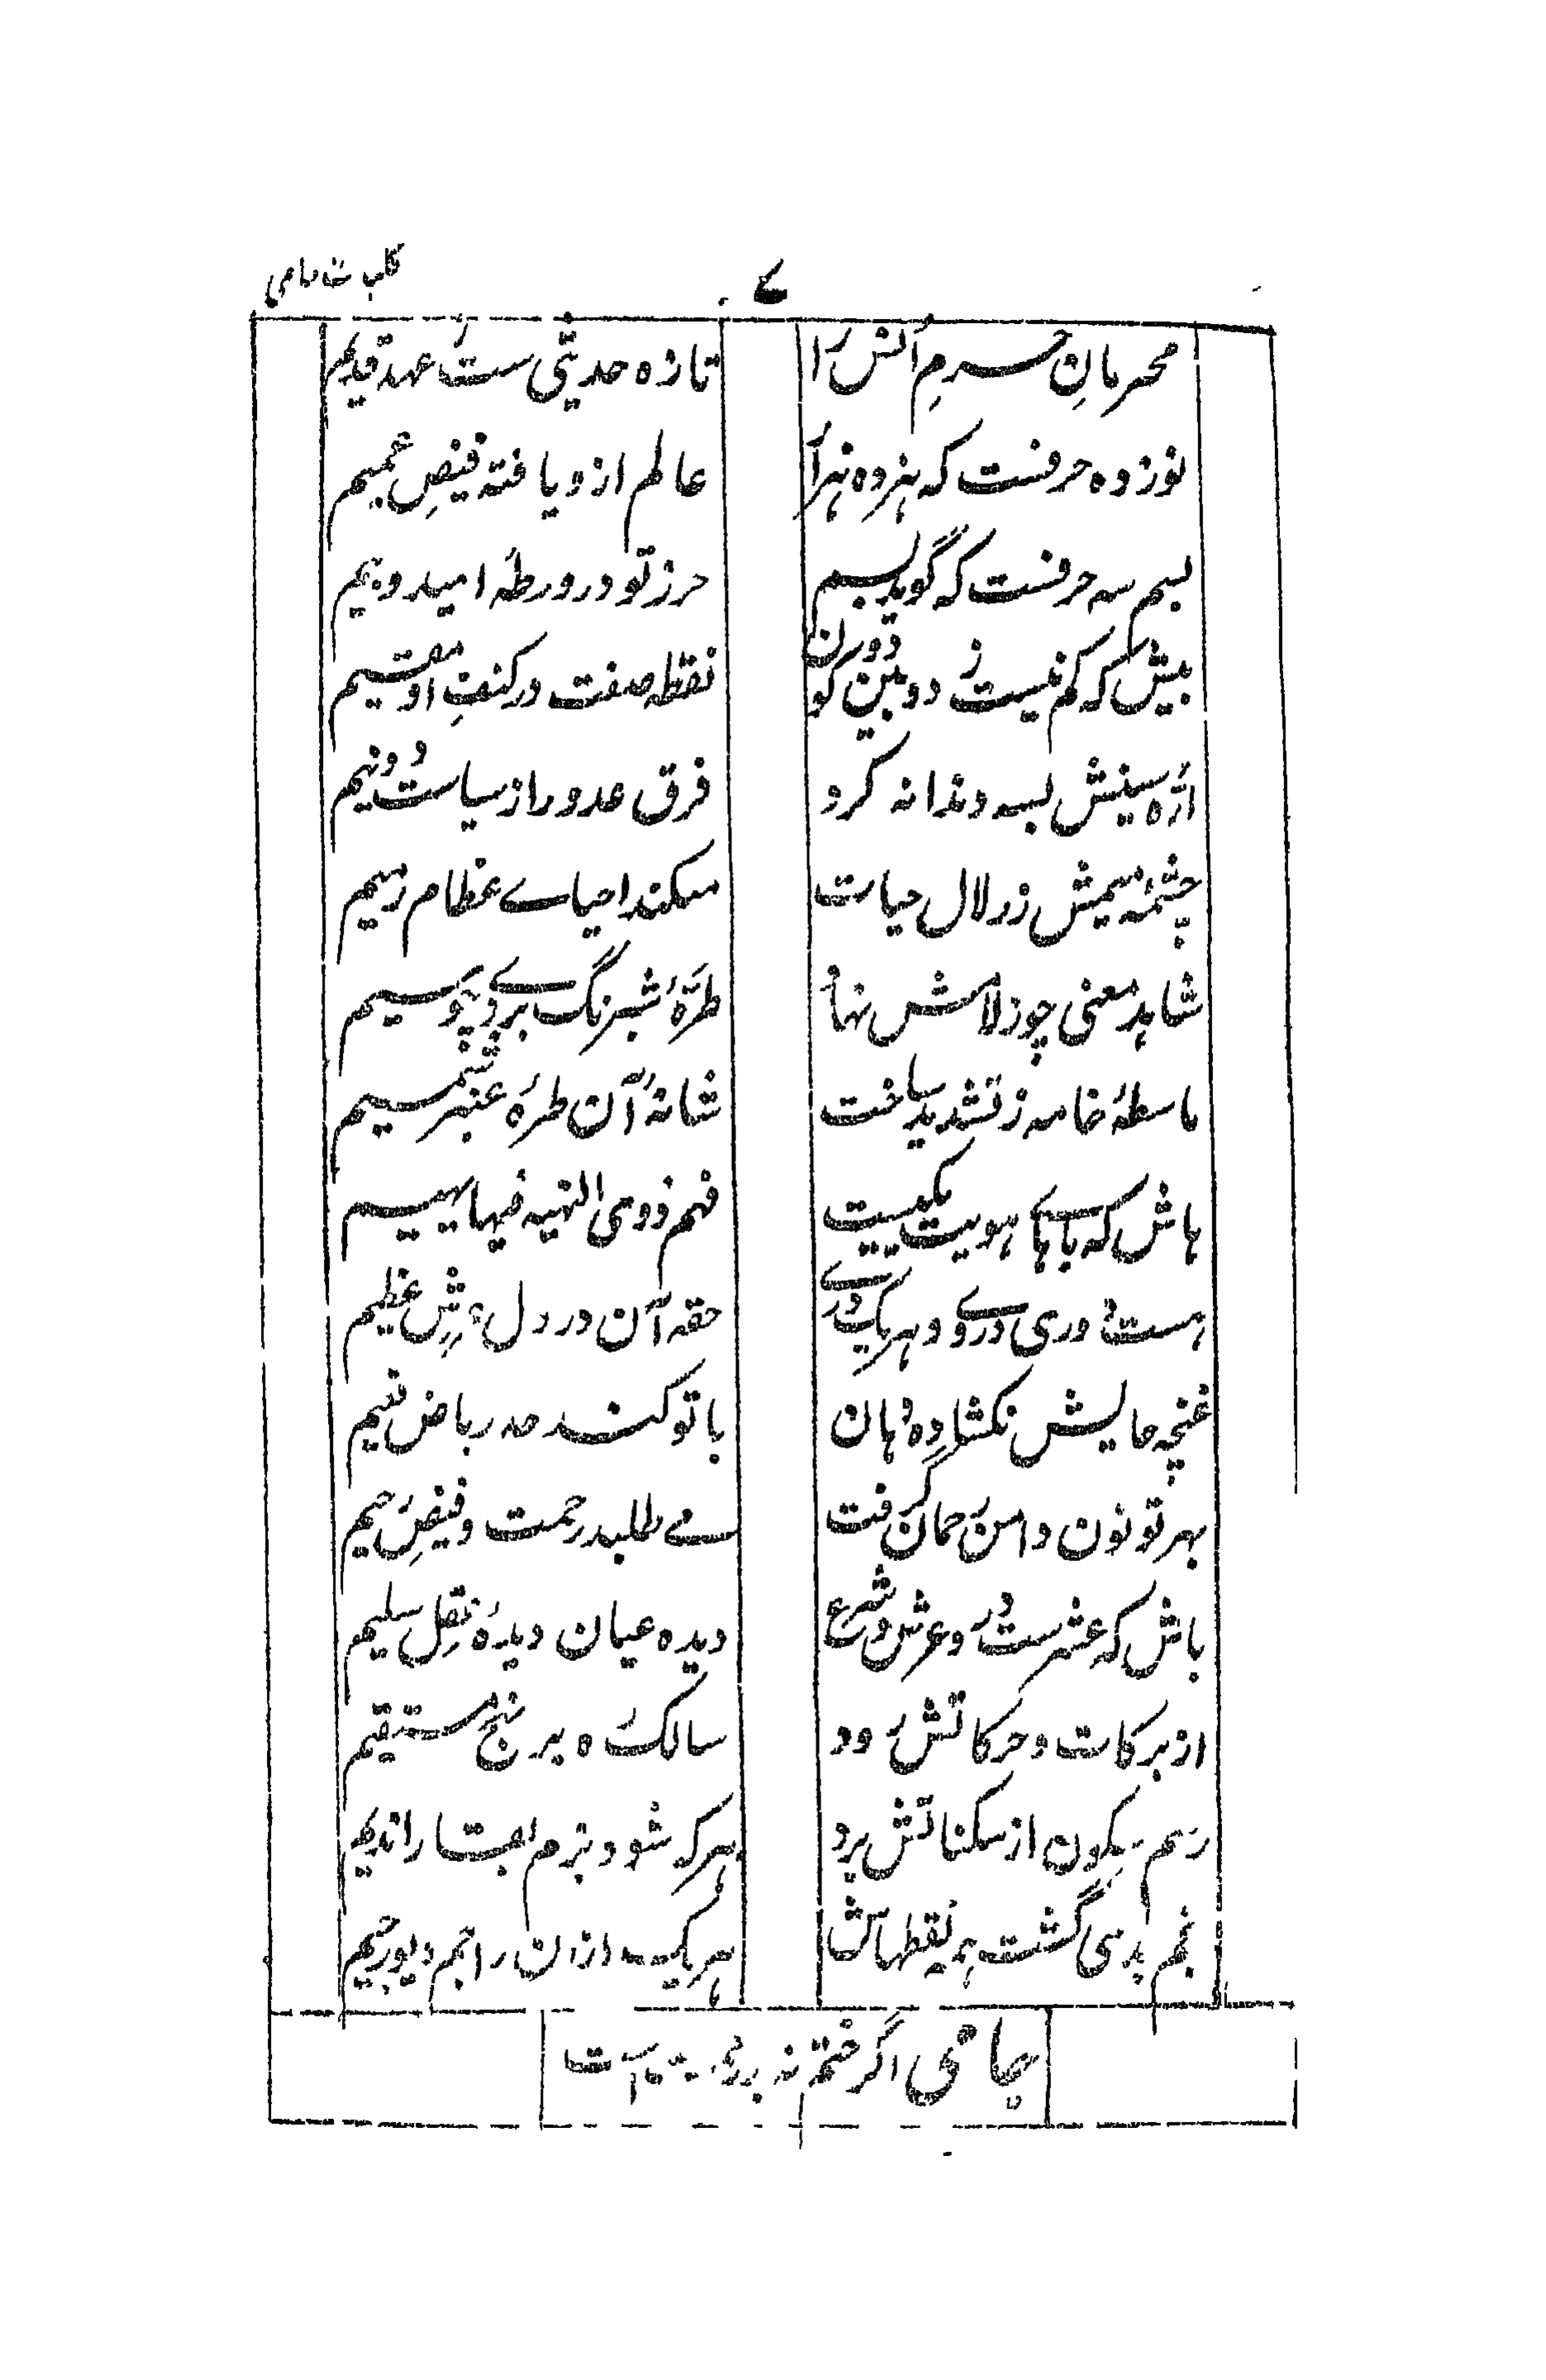 کلیات جامی
۷
محرمانِ حرمِ اُنس را
تازه حدیثی ست ز عهد قدیم
نوزده حرفست که هژده هزار
عالم ازو یافته فیضِ عمیم
بسم سه حرفست که گوید بسم
حرز تو در ورطۀ امید و بیم
بیش که کم نیست ز دو بین کو
نقطه صفت در کنفِ او مقیم
ارّه سینش بسه دندانه کرد
فرق عدو را ز سیاست دو نیم
چشمۀ میمش ز زلال حیات
میکند احیاے عظام رمیم
شاهد معنی چو ز لامش نهاد
طرّۀ شبرنگ بروے چو سیم
ماسطۀ خامه ز تشدید ساخت
شانۀ آن طرۀ عنبر شمیم
هاش که باهاے هویت یکیست
فهم ذوی النهیه فیها یهیم
هست دُوری دروے و هر یک دُرے
حقه آن در دل عرشِ عظیم
غنچه حایش نکشاده دهان
با تو کند صد ریاض نعیم
بهر تو نون دامن رحمان گرفت
مے طلبد رحمت و فیضِ رحیم
باش که عشرست و عرش و شرع
دیده عیان دیدۀ عقلِ سلیم
از برکات و حرکاتش رود
سالک ره بر نهج مستقیم
رسم سکون از سکناتش برد
هر که شود بزم بقا را ندیم
نجم هدی گشت همه نقطهاش
هر یک ازان راجم دیو رجیم
جامی اگر ختم نه بر رحمت است